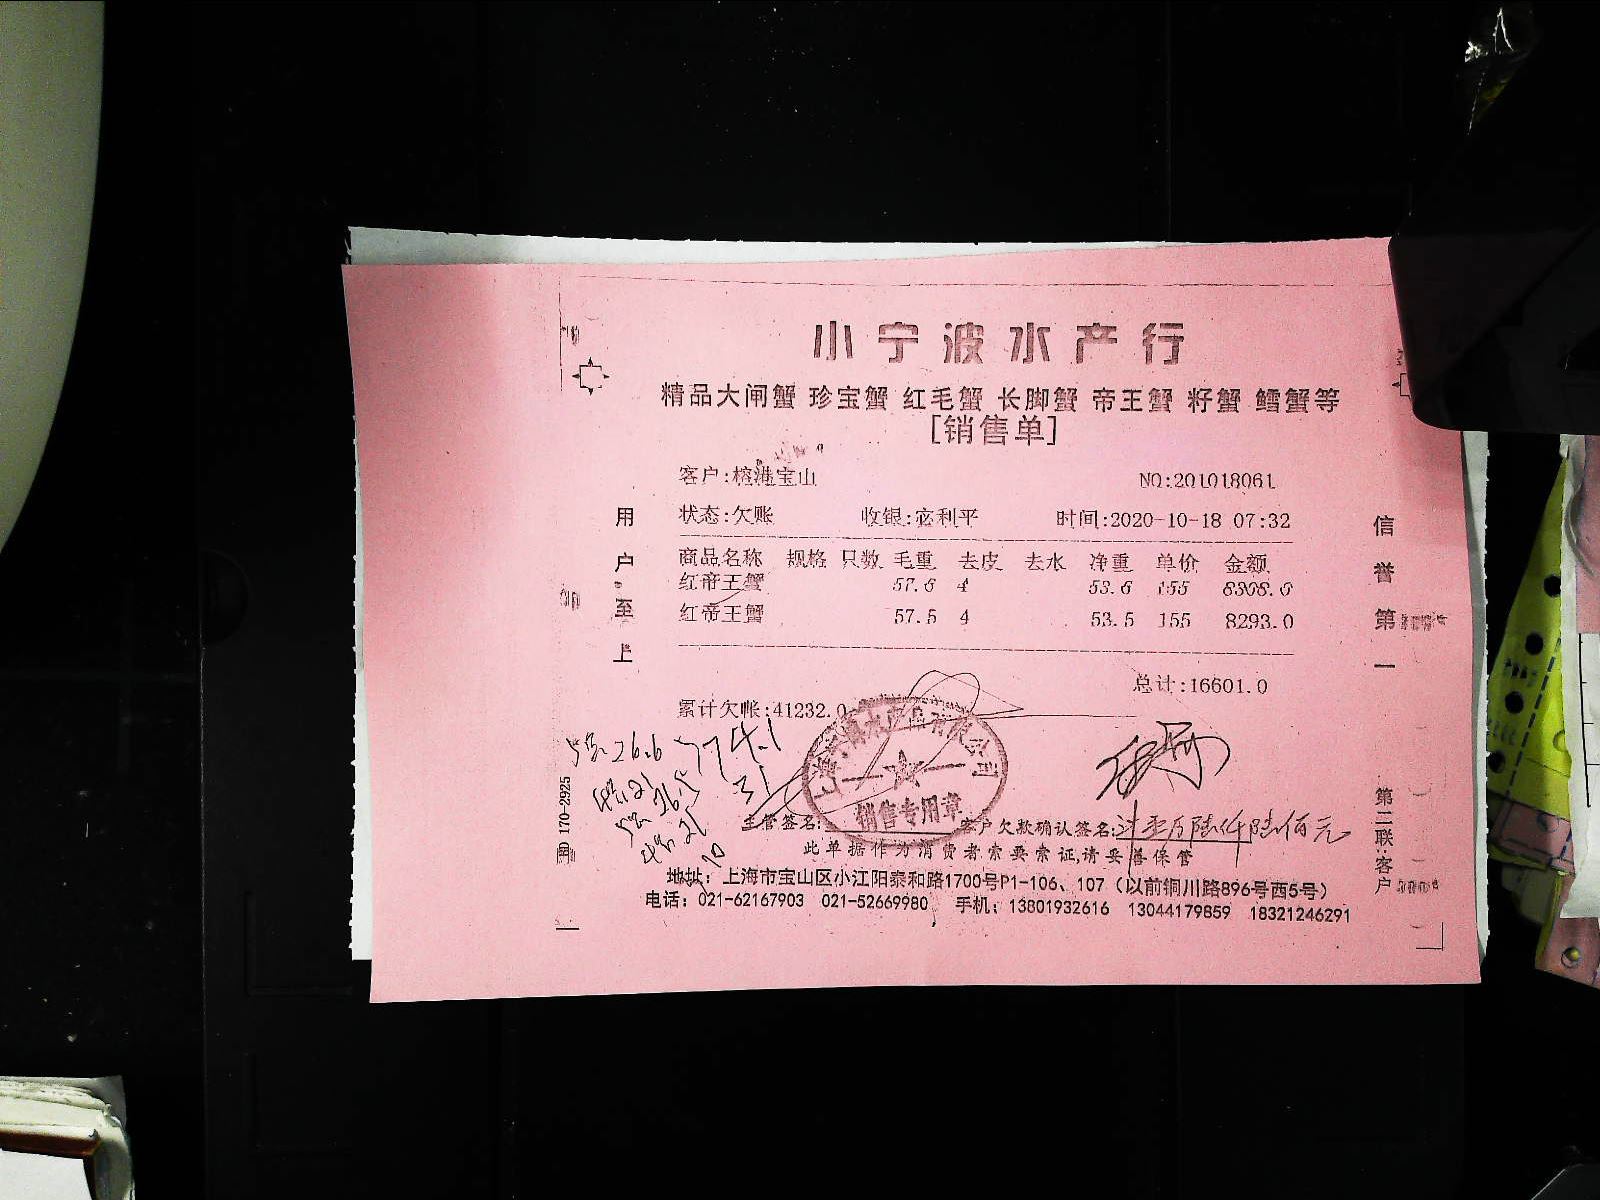 小宁波水产行
精品大闸蟹 珍宝蟹 红毛蟹 长脚蟹 帝王蟹 籽蟹 鳕蟹等
[销售单]
客户:榕港宝山 NO:201018061
状态:欠账 收银:宓利平 时间:2020-10-18 07:32
商品名称 规格 只数 毛重 去皮 去水 净重 单价 金额
红帝王蟹 57.6 4 53.6 155 8308.0
红帝王蟹 57.5 4 53.5 155 8293.0
总计:16601.0
累计欠帐:41232.0
销售专用章
主管签名: 客户欠款确认签名:
此单据作为消费者索要索证,请妥善保管
地址: 上海市宝山区小江阳泰和路1700号P1-106、107 (以前铜川路896号西5号)
电话: 021-62167903 021-52669980 手机: 13801932616 13044179859 18321246291
用户至上
信誉第一
第二联:客户
170-2925